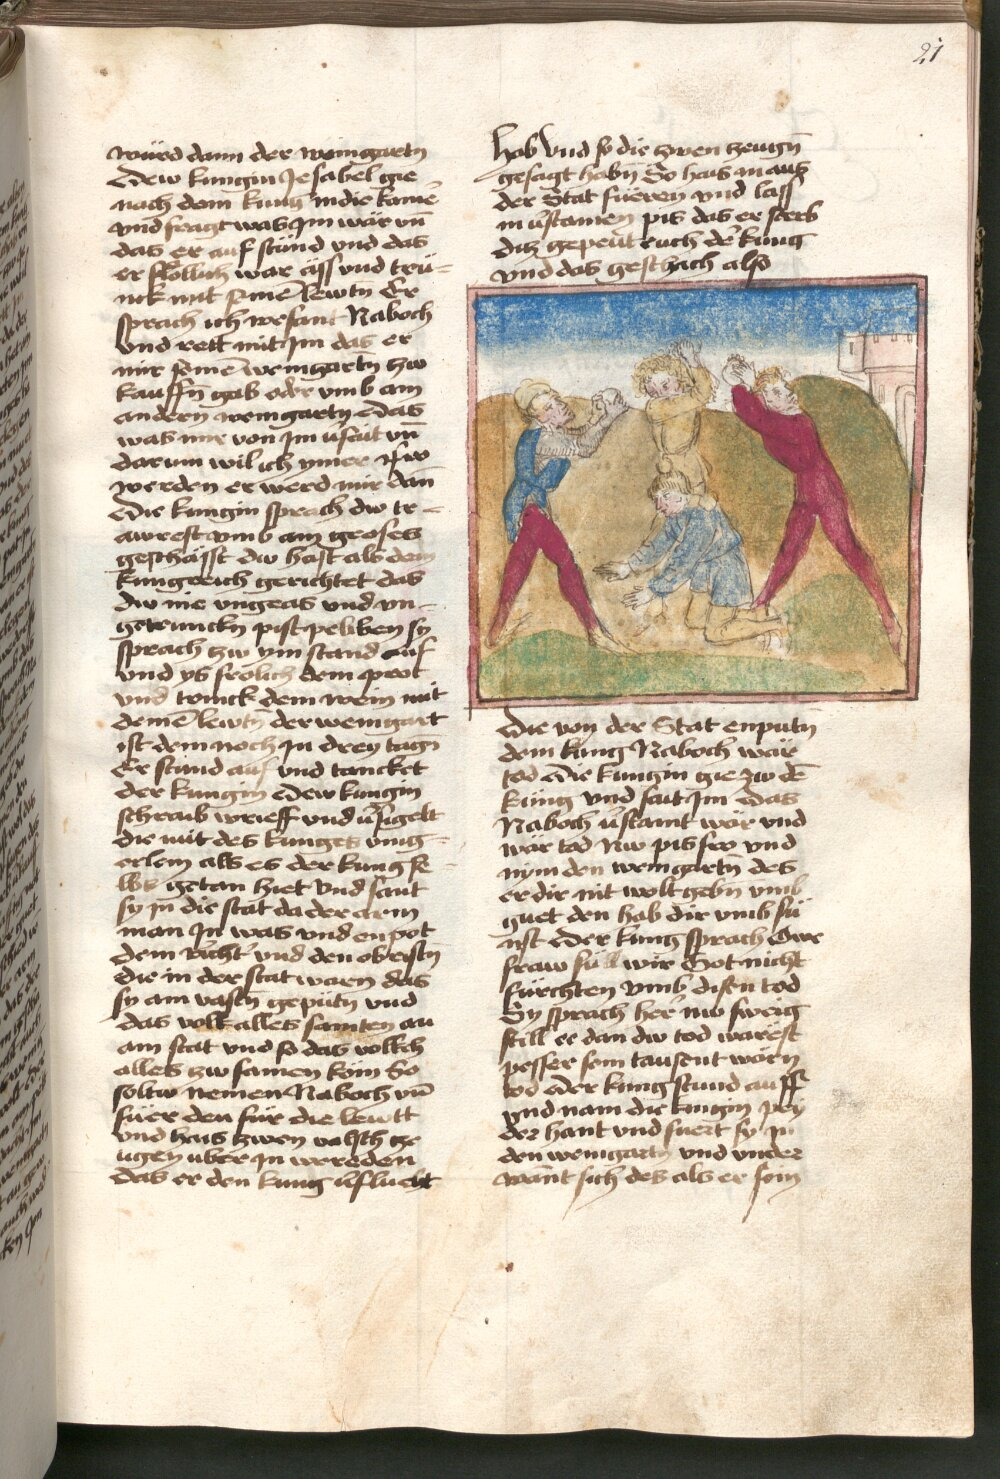 21
würd dann der weingartn
Dew kungin Jesabel gie
nach dem kung in die kamē
vnd fragt was Im wär vn̄
das er auf stund vnd das
er frolich war ass vnd trü-
nck mit seinē lewtn Er
sprach ich wesant Naboch
vnd rett mit Im das er
mir seinē weingartn zw
kauffn gab oder vmb ain
andern weingartn Das
was mir von Im v̄sait vn̄
darum wil ich ymer
werden er werd mir dan̄
Die kungin sprach dw tr-
awrest vmb ain groses
geschäfft dw hast als dem
kungreich gerichtet das
dw nie vngeas vnd vn-
getrunckn pist peliben sy
sprach zw ym stand auf
vnd ys frolich dein prot
vnd trinck dein wein mit
deinē lewtn der weingart
ist dennoch In drey tagn
Er stund auf vnd dancket
der kungin Dew kungin
schraib brieff vnd v̄sigelt
die mit des kunges insig-
erlein als es der kung se-
lbs getan hiet Vnd sant
sy In die stat da der arm
man In was vnd enpot
dem richt' vnd den obristn
die in der stat warn das
sy ain vastn geputn vnd
das volk alles samten an
ain stat vnd so das volkch
alles zw samen köm So
soltn nemen Naboch vn̄
füer den für die lewtt
vnd hais zwen valsch ze-
ugen vber In wereden
das er den kung v̄flucht
hab Vnd so die zwen zeugn
gesagt habn So hais in aus
der Stat füeren vnd lass
in v̄stainen pis das er sterb
ditz gepeut euch der kung
vnd das geschach also
Die von der Stat enputn
dem kung Naboch wär
tod Die kungin gie zw dē
kung vnd sait Im Das
Naboch v̄staint wär vnd
wär tod Nw pis fro vnd
nym den weingartn des
er dir nit wolt gebn vmb
guet den hab dir vmb sü-
nst Der kung sprach Owe
fraw süll wir Got nicht
fürchten vmb disen tod
Sy sprach her nw sweig
still ee dan dw tod warest
pesser sein tausent wären
tod Der kung stund auff
vnd nam die kungin pey
der hant vnd fuert sy in
den weingartn vnd vnder
want sich des als er sein